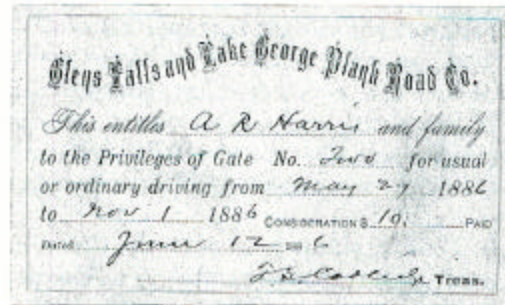 Glens Falls and Lake George Plank Road Co.
This entitles A R Harris and family
to the Privileges of Gate No. Two for usual
or ordinary driving from May 27 1886
to Nov 1 1886 CONSIDERATION $ 10. PAID
Dated June 12 1886
Treas.